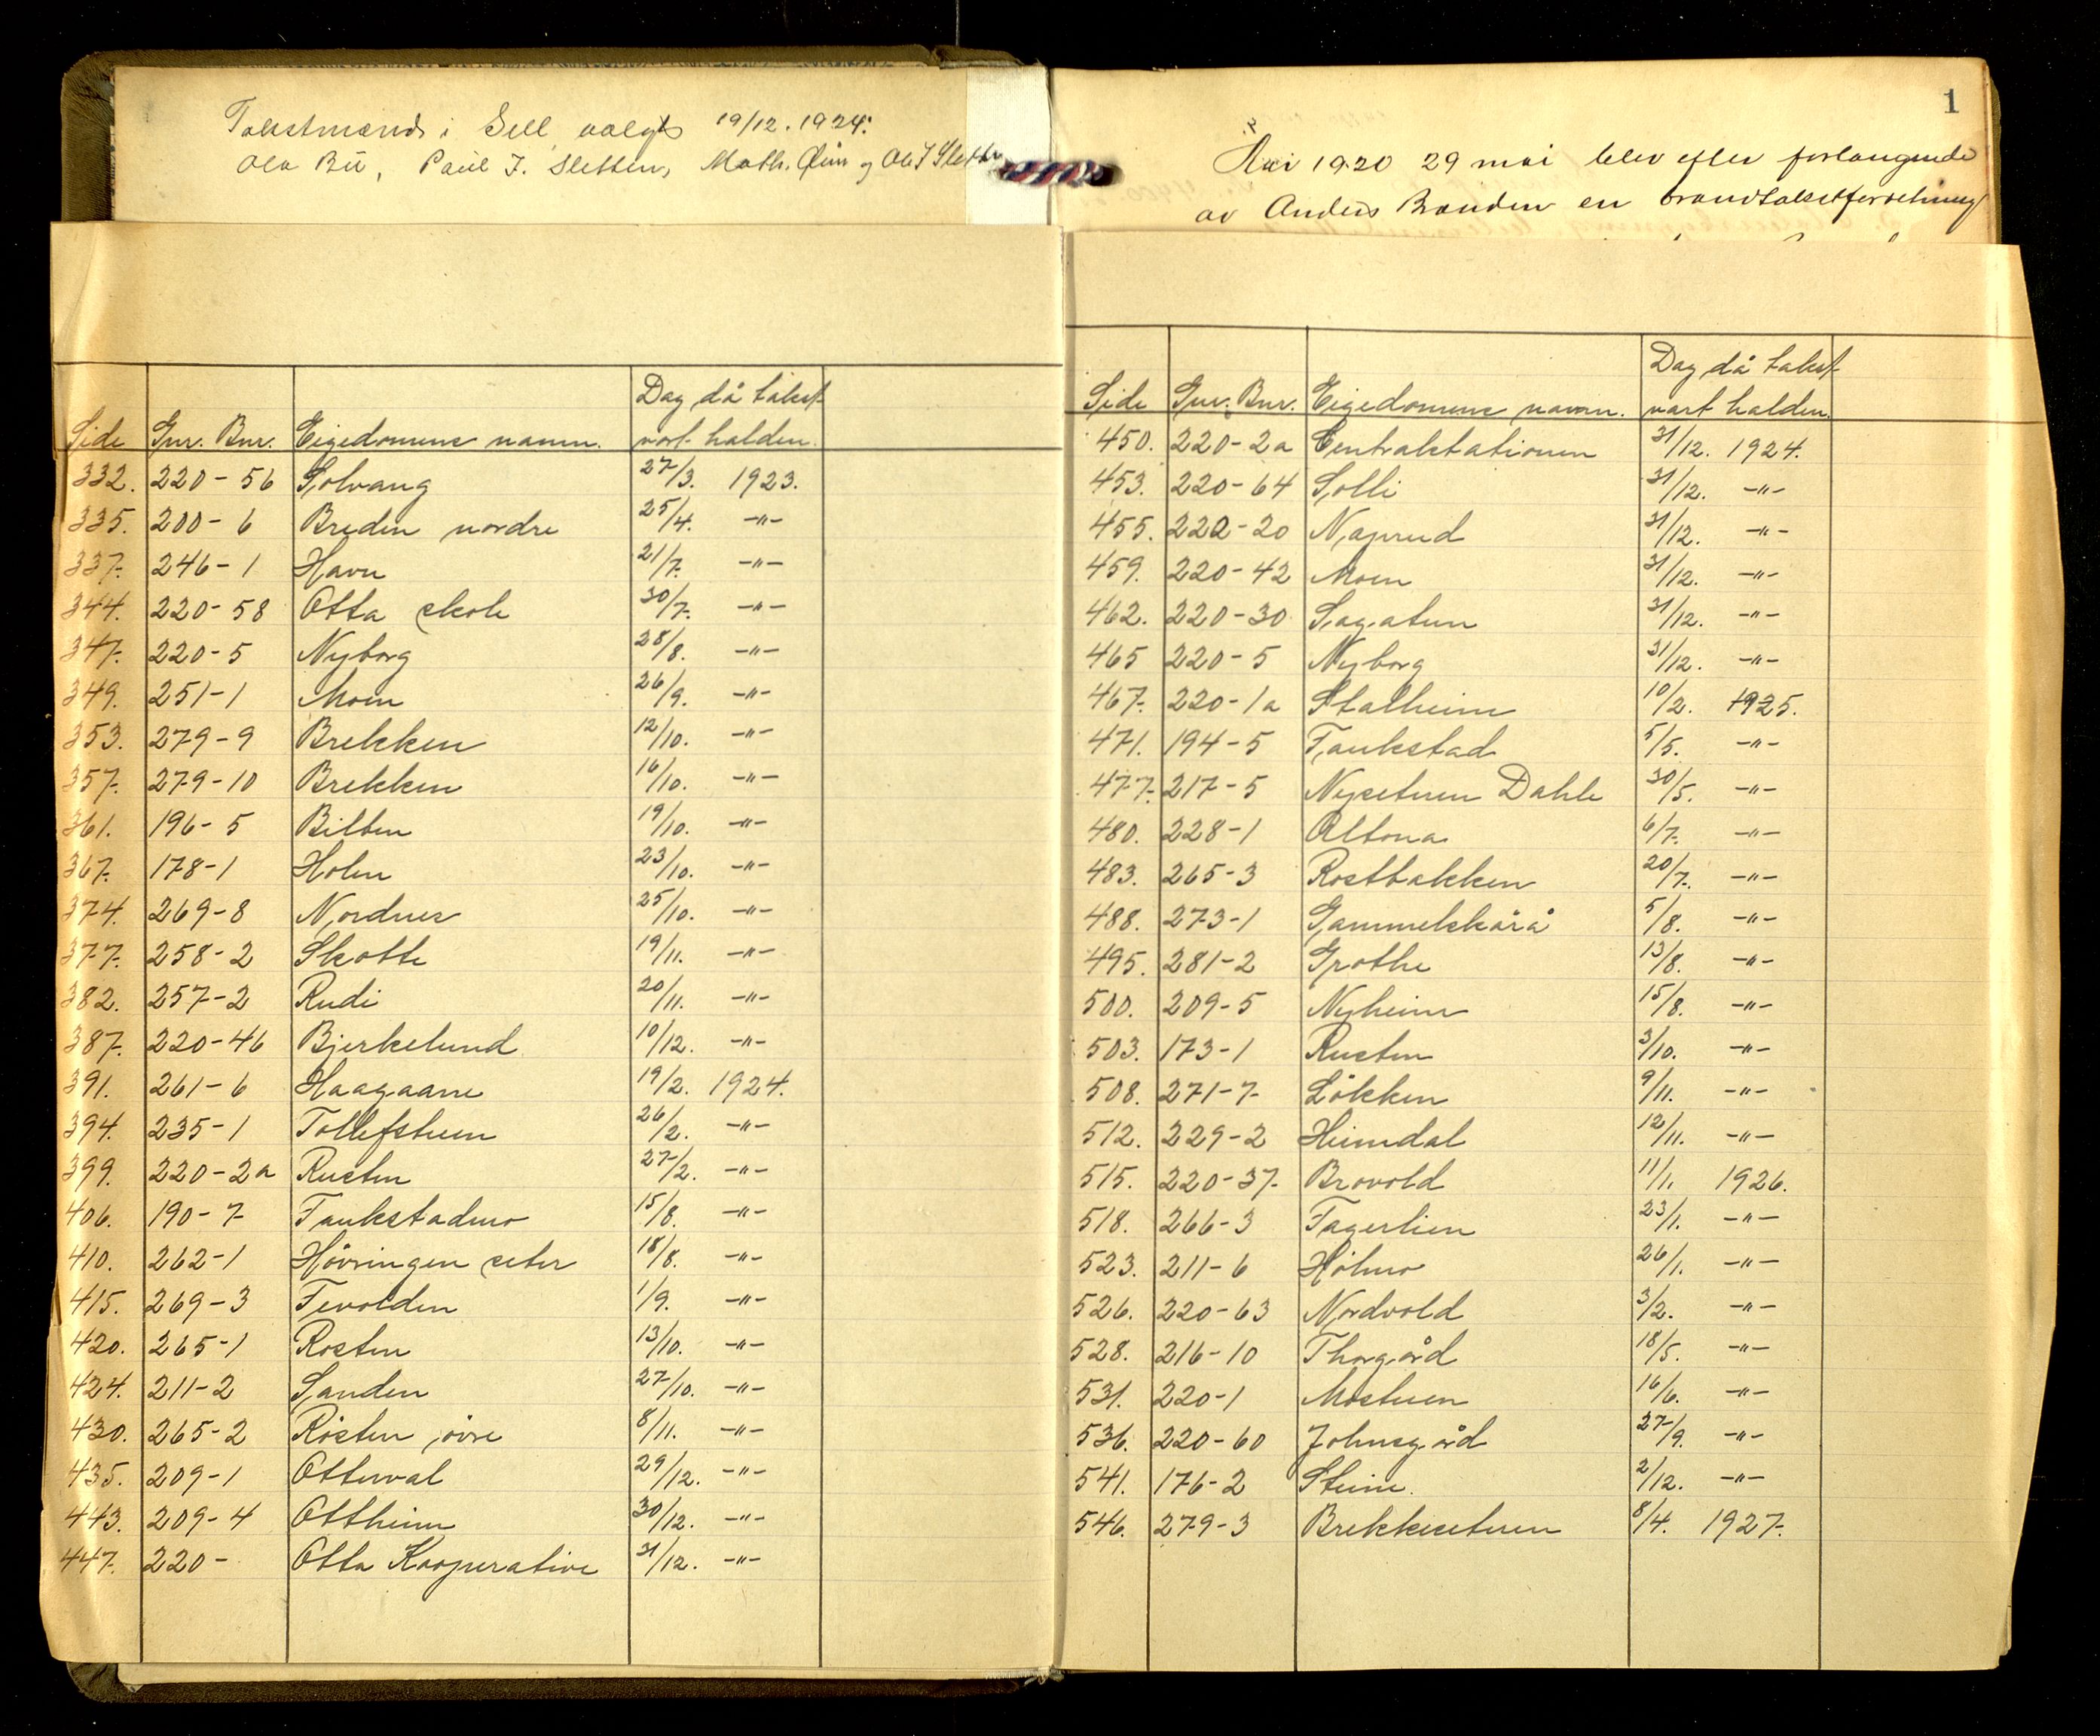 Takstmænd i Sell valgt 19/12. 1924:
Ola Bu, Paul J. Sletten, Math. Øien og Ole J Sletten
Side Gnr. Bnr. Eigedomens namn. Dag då takst vart halden.
332. 220-56 Solvang 27/3. 1923.
335. 200-6 Breden nordre 25/4. -"-
337. 246-1 Havn 21/7. -"-
344. 220-58 Otta skole 30/7. -"-
347. 220-5 Nyborg 28/8. -"-
349. 251-1 Moen 26/9. -"-
353. 279-9 Brekken 12/10. -"-
357. 279-10 Brekken 16/10. -"-
361. 196-5 Bilben 19/10. -"-
367. 178-1 Holen 23/10. -"-
374. 269-8 Nordnes 25/10. -"-
377. 258-2 Skotte 19/11. -"-
382. 257-2 Rudi 20/11. -"-
387. 220-46 Bjerkelund 10/12. -"-
391. 261-6 Haagaarre 19/2. 1924.
394. 235-1 Tollefstuen 26/2. -"-
399. 220-2a Rusten 27/2. -"-
406. 190-7 Taukstadmo 15/8. -"-
410. 262-1 Hövringen seter 18/8. -"-
415. 269-3 Tevolden 1/9. -"-
420. 265-1 Rosten 13/10. -"-
424. 211-2 Sanden 27/10. -"-
430. 265-2 Rösten övre 8/11. -"-
435. 209-1 Otterval 29/12. -"-
443. 209-4 Ottheim 30/12. -"-
447. 220- Otta Kooperative 31/12. -"-
1
Aar 1920 29 mai blev efter forlangende
av Anders Branden en brandtakstforretning
Side Gnr. Bnr. Eigedomens namn. Dag då takst vart halden.
450. 220-2a Centralstationen 31/12. 1924.
453. 220-64 Solli 31/12. -"-
455. 220-20 Naprud 31/12. -"-
459. 220-42 Moen 31/12. -"-
462. 220-30 Sagatun 31/12. -"-
465 220-5 Nyborg 31/12. -"-
467. 220-1a Stalheim 10/2. 1925.
471. 194-5 Taukstad 5/5. -"-
477. 217-5 Nysetuen Dahle 30/5. -"-
480. 228-1 Altona 6/7. -"-
483. 265-3 Rostbakken 20/7. -"-
488. 273-1 Gammelskårå 5/8. -"-
495. 281-2 Grothe 13/8. -"-
500. 209-5 Nyheim 15/8. -"-
503. 173-1 Rusten 3/10. -"-
508. 271-7 Lökken 9/11. -"-
512. 229-2 Heimdal 12/11. -"-
515. 220-37. Brovold 11/1. 1926.
518. 266-3 Fagerlien 23/1. -"-
523. 211-6 Hölmo 26/1. -"-
526. 220-63 Nordvold 3/2. -"-
528. 216-10 Thorgård 18/5. -"-
531. 220-1 Mostuen 16/6. -"-
536. 220-60 Johnsgård 27/9. -"-
541. 176-2 Steine. 2/12. -"-
546. 279-3 Brekkesetuen 8/4. 1927.